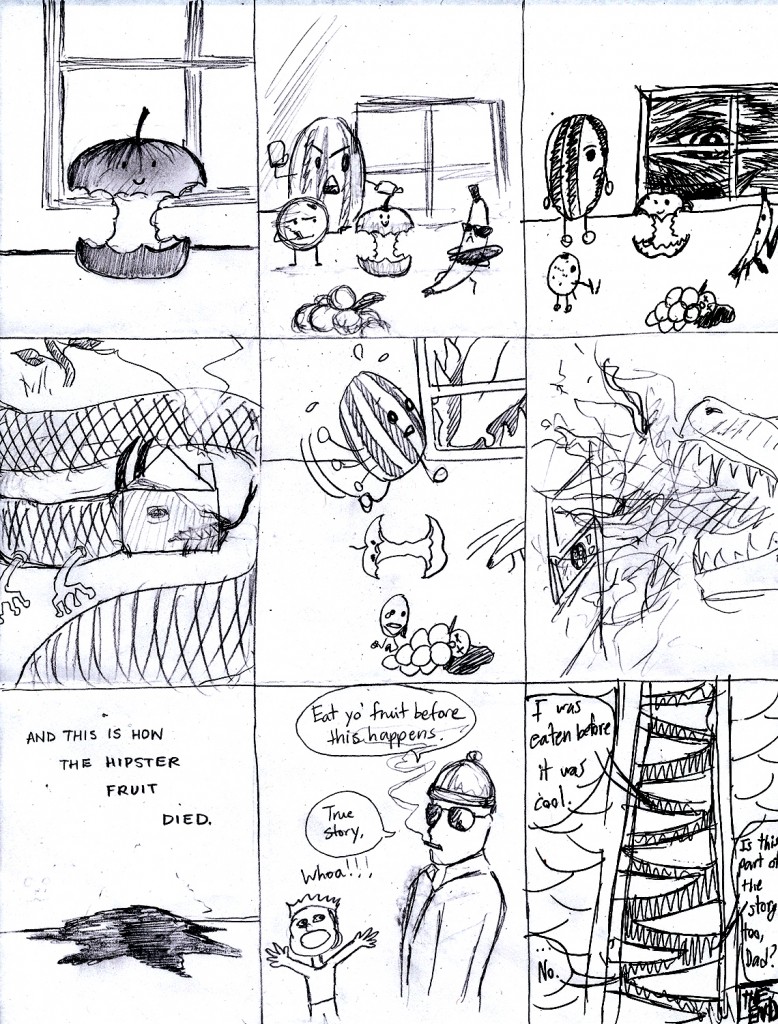 AND THIS IS HOW
THE HIPSTER
FRUIT
DIED.
Eat yo' fruit before
this happens.
True
story,
Whoa!!!
I was
eaten before
it was
cool.
Is this
part of
the
story
too,
Dad?
...
No.
THE
END